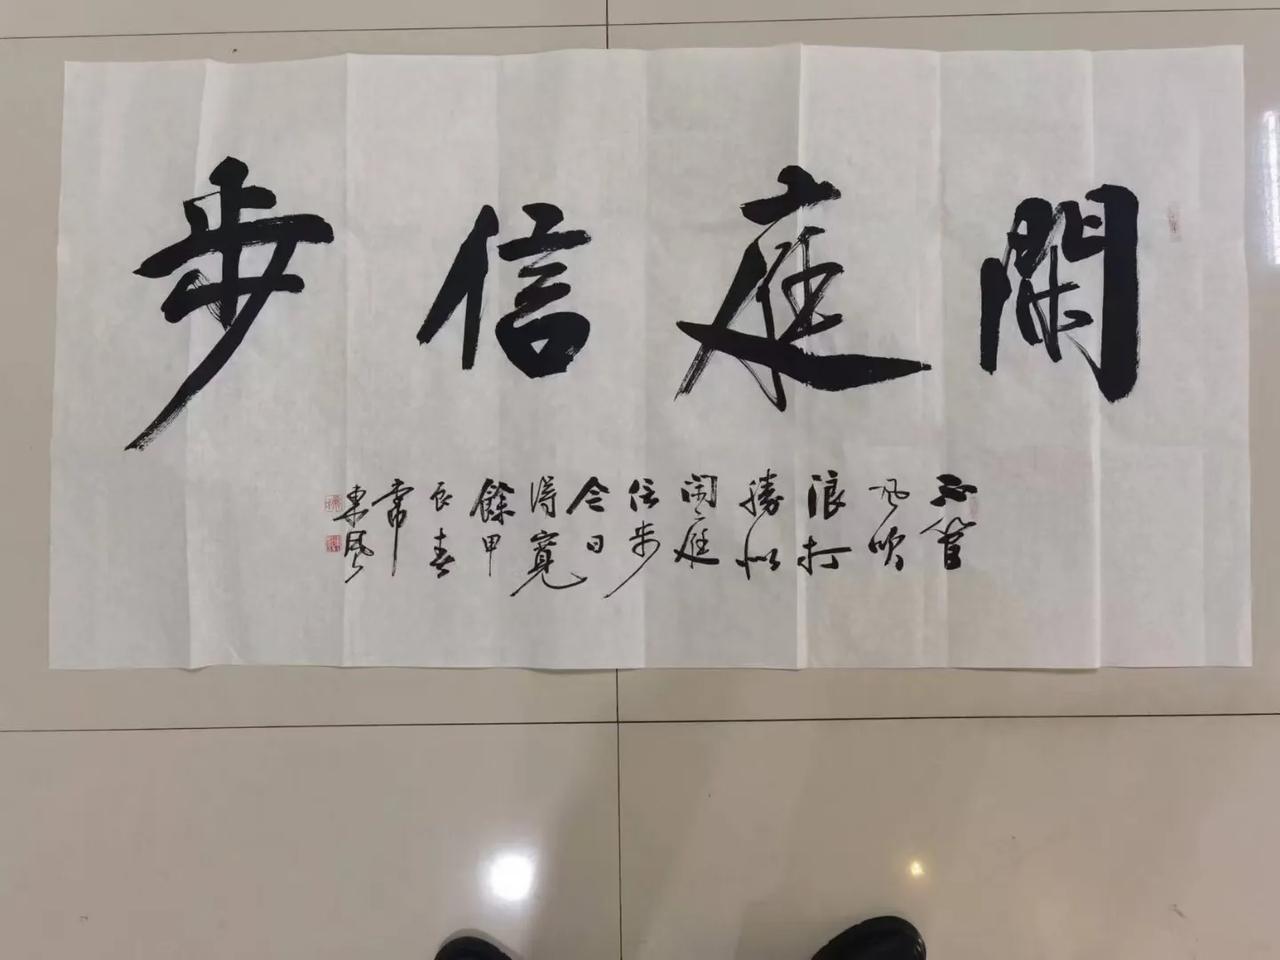 閑庭信步
不管
風吹
浪打
勝似
閑庭
信步
今日
得寬
餘甲
辰春
常
東風